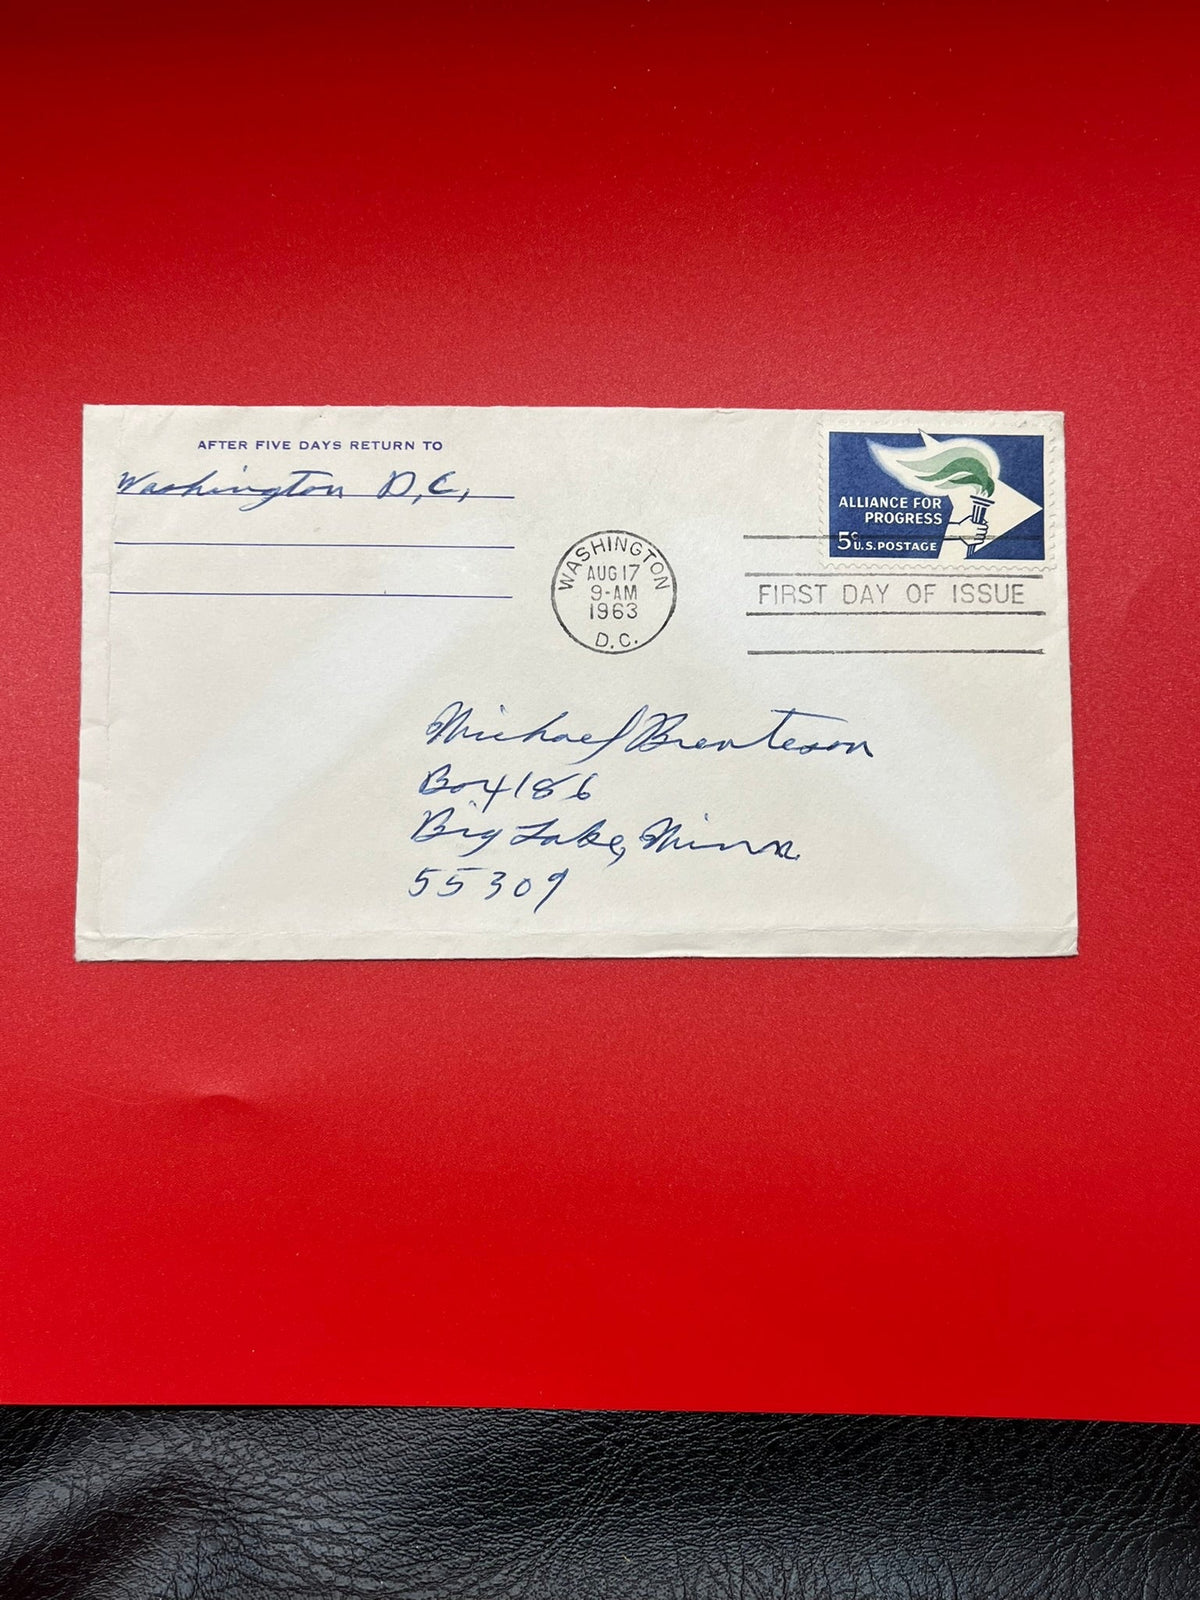 AFTER FIVE DAYS RETURN TO
Washington D.C.
ALLIANCE FOR
PROGRESS
5c U.S. POSTAGE
WASHINGTON
AUG 17
9-AM
1963
D.C.
FIRST DAY OF ISSUE
Michael Brenteson
Box 186
Big Lake, Minn.
55309